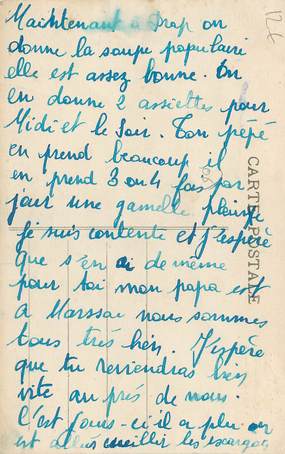 Maintenant à Drap on
donne la soupe populaire
elle est assez bonne. On
en donne 2 assiettes pour
Midi et le soir. Ton pépé
en prend beaucoup il
en prend 3 ou 4 fois par
jour une gamelle pleine
Je suis contente et j'espère
que s'en ai de même
pour toi mon papa est
à Marssac nous sommes
tous très bien. J'espère
que tu reviendras bien
vite au près de nous.
C'est jours-ci il a plu on
est allés cueillir les escargots
CARTE POSTALE
12€